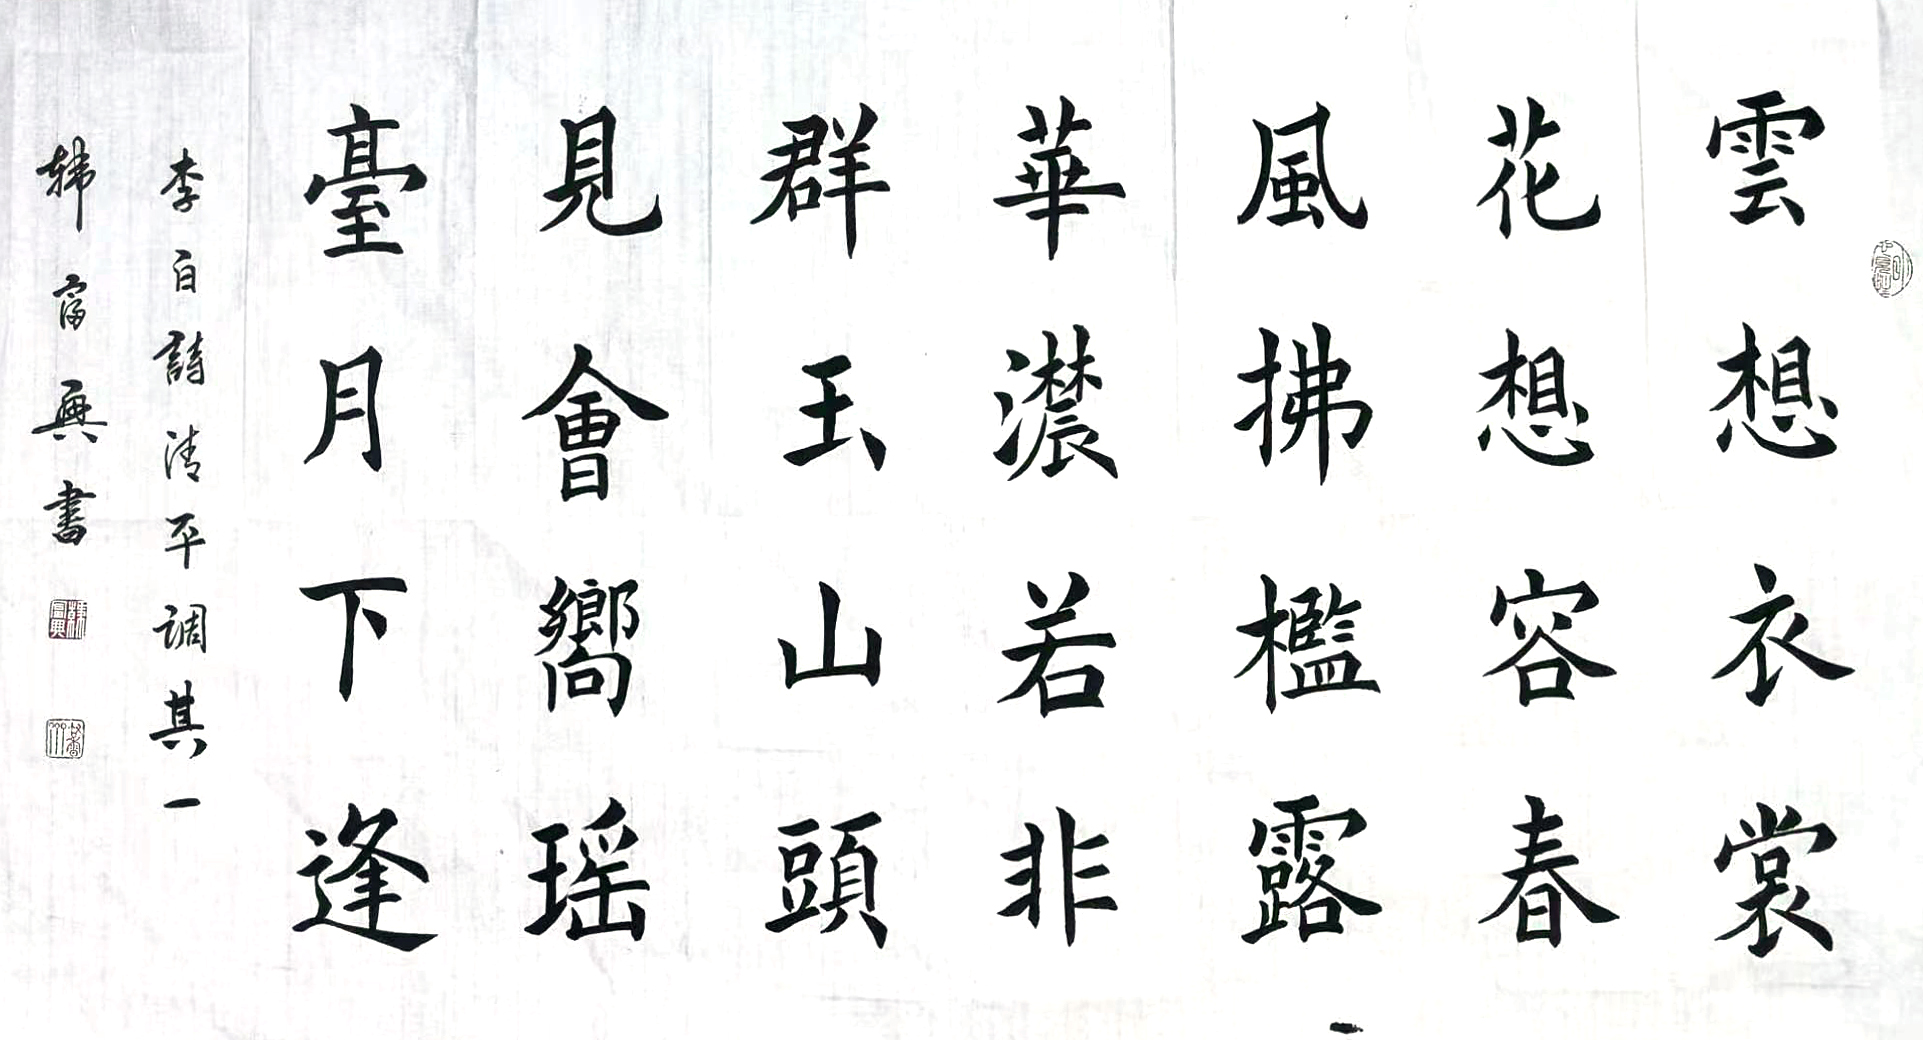 雲想衣裳
花想容春
風拂檻露
華濃若非
群玉山頭
見會嚮瑶
臺月下逢
李白詩清平調其一
韩富興書